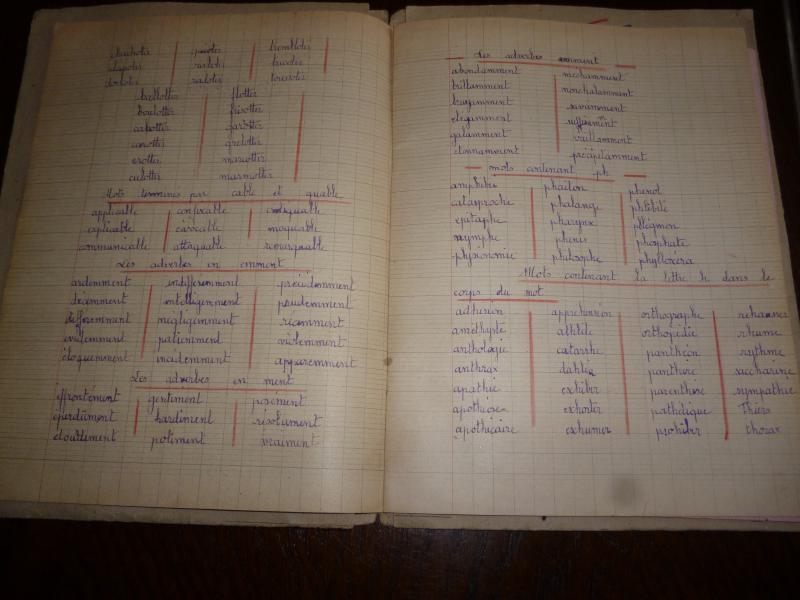 chuchoter picoter trembloter
clapoter raboter tricoter
dorloter radoter toussoter
ballotter flotter
boulotter frisotter
carotter garotter
crotter grelotter
culotter marmotter
Mots terminés par cable et quable
applicable confiscable
explicable évocable moquable
communicable attaquable remarquable
Les adverbes en emment
ardemment indifféremment précédemment
décemment intelligemment prudemment
différemment négligemment récemment
évidemment patiemment violemment
éloquemment incidemment apparemment
Les adverbes en ment
effrontément gentiment posément
éperdument hardiment résolument
étourdiment poliment vraiment
Les adverbes amment
abondamment méchamment
brillamment nonchalamment
bruyamment savamment
élégamment
galamment vaillamment
étonnamment précipitamment
mots contenant ph
amphibie phaéton phénol
cataprophe phalange phlébite
épitaphe pharynx phlegmon
nymphe phénix phosphate
physionomie philosophe phylloxera
Mots contenant la lettre h dans le
corps du mot
adhésion appréhension orthographe rehausser
améthyste athlète orthopédie rhume
anthologie catarrhe panthéon rythme
anthrax dahlia panthère saccharine
apathie exhiber parenthèse sympathie
apothéose exhorter pathétique Thiers
apothicaire exhumer prohiber thorax